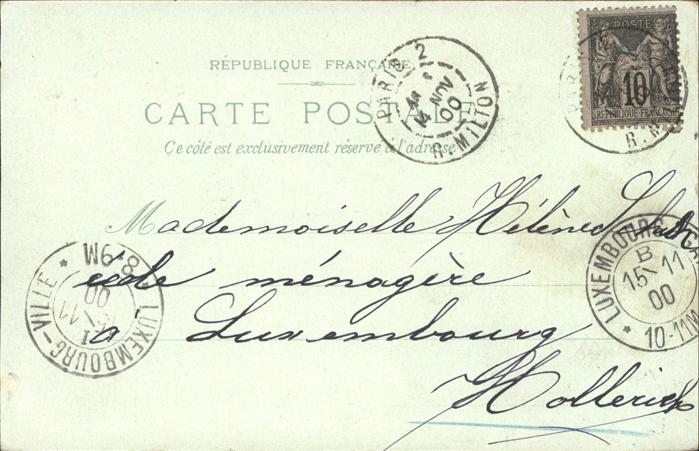 RÉPUBLIQUE FRANÇAISE
CARTE POSTALE
Ce côté est exclusivement réservé à l'adresse
POSTE
10
RÉPUBLIQUE FRANÇAISE
PARIS 2
NOV
00
R. MILTON
R. M
Mademoiselle Hélène
école ménagère
à Luxembourg
Hollerich
LUXEMBOURG-VILLE
8-9M
00
LUXEMBOURG
B
15 11
00
10-11M